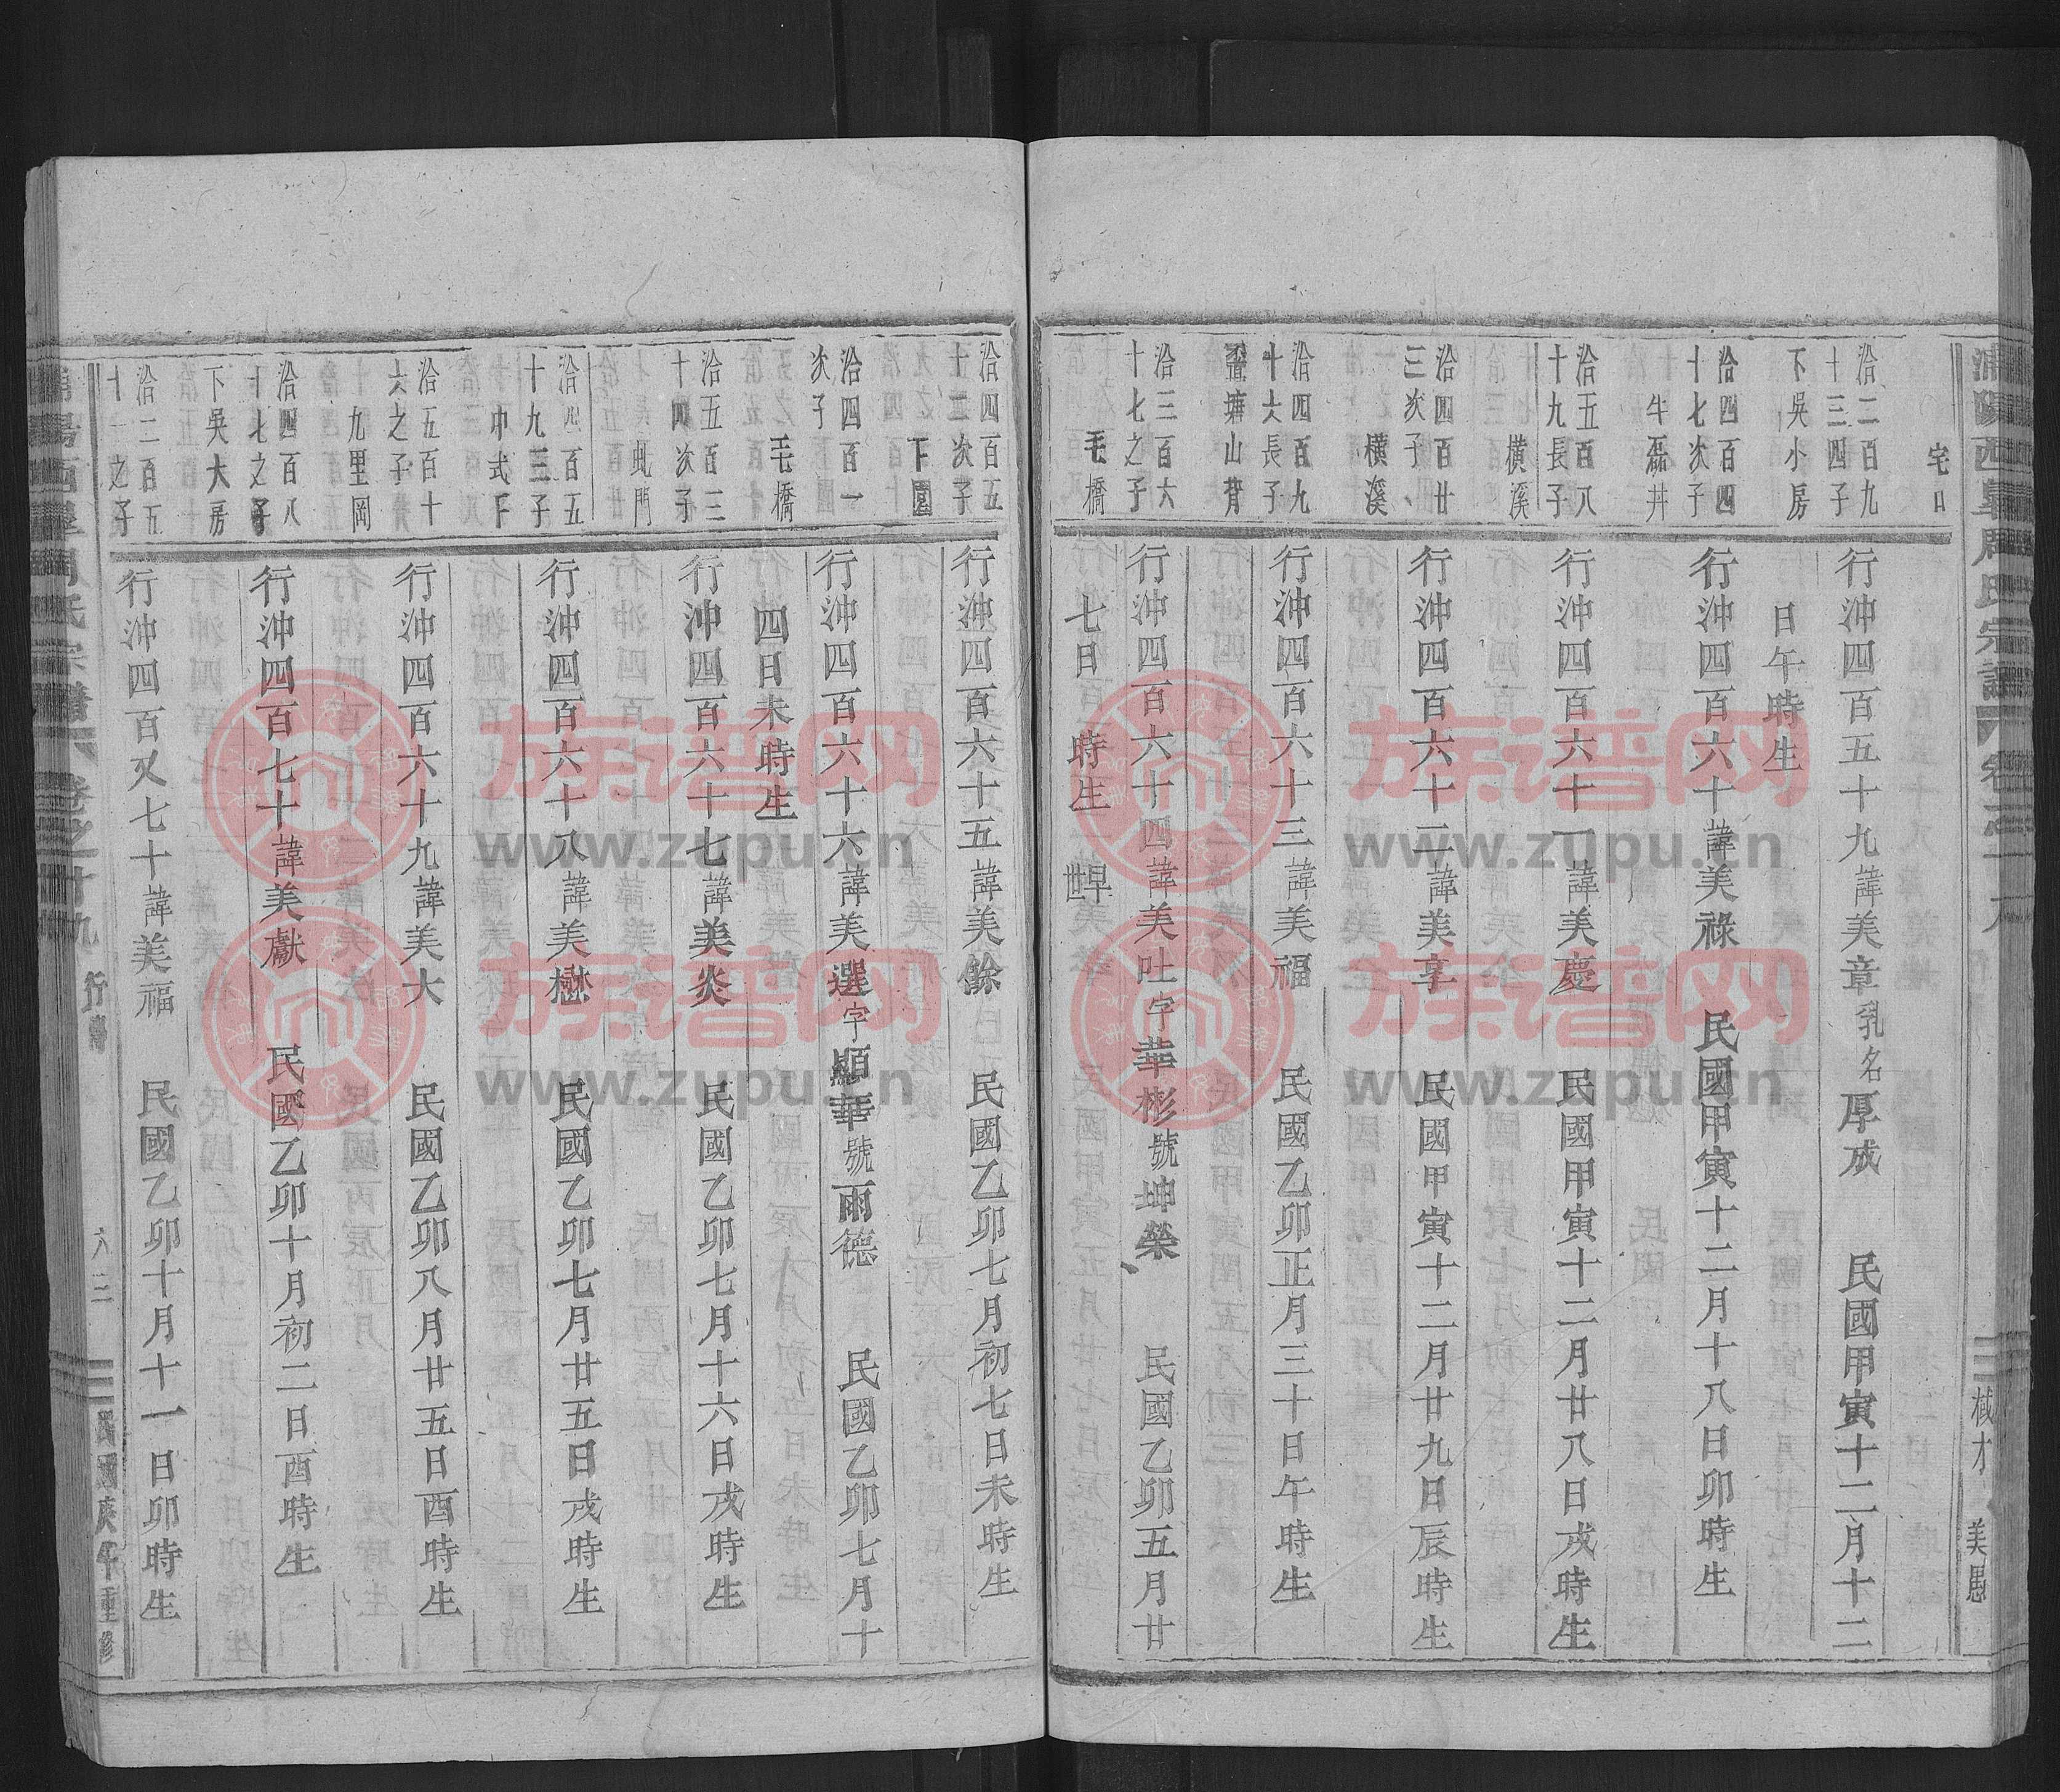 宅口
洽二百九
十三四子
下吳小房
行沖四百五十九諱美章乳名厚成 民國甲寅十二月十二
日午時生
洽四百四
十七次子
牛磊井
行沖四百六十諱美祿 民國甲寅十二月十八日卯時生
洽五百八
十九長子
橫溪
行沖四百六十一諱美慶 民國甲寅十二月廿八日戌時生
洽四百廿
三次子
橫溪
行沖四百六十二諱美享 民國甲寅十二月廿九日辰時生
洽四百九
十六長子
塘山背
行沖四百六十三諱美福 民國乙卯正月三十日午時生
洽三百六
十七之子
毛橋
行沖四百六十四諱美吐字華彬號坤榮 民國乙卯五月廿
七日 時生 早世
洽四百五
十二次子
下園
行沖四百六十五諱美餘 民國乙卯七月初七日未時生
洽四百一
次子
毛橋
行沖四百六十六諱美選字顯華號雨德 民國乙卯七月十
四日未時生
洽五百三
十四次子
門
行沖四百六十七諱美炎 民國乙卯七月十六日戌時生
洽四百五
十九三子
巾式下
行沖四百六十八諱美懋 民國乙卯七月廿五日戌時生
洽五百十
六之子
九里岡
行沖四百六十九諱美大 民國乙卯八月廿五日酉時生
洽四百八
十七之子
下吳大房
行沖四百七十諱美獻 民國乙卯十月初二日酉時生
洽二百五
十一之子
行沖四百又七十諱美福 民國乙卯十月十一日卯時生
卷之十九 行傳 六三 民國庚午重修
族谱网
www.zupu.cn
族谱网
www.zupu.cn
族谱网
www.zupu.cn
族谱网
www.zupu.cn